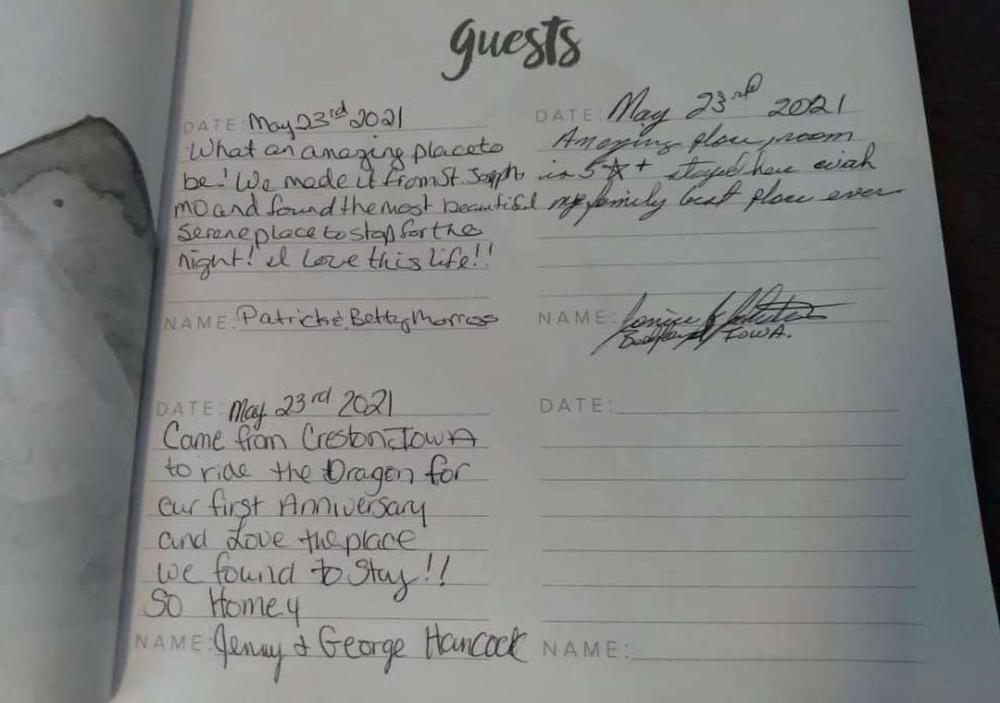 guests
DATE: May 23rd 2021
What an amazing place to
be! We made it from St. Joseph
MO and found the most beautiful
Serene place to stop for the
night! I Love this life!!
NAME: Patrick & Betty Morross
DATE: May 23rd 2021
Amazing place, room
is 5☆+ stayed here with
my family best place ever
NAME:
Bedford IOWA.
DATE: May 23rd 2021
Came from Creston, IOWA
to ride the Dragon for
our first Anniversary
and Love the place
we found to Stay!!
SO Homey
NAME: Jenny & George Hancock
DATE:
NAME: